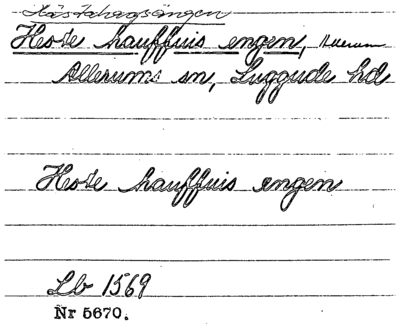 Hästahagsängen
Heste hauffuis engen, Allerum
Allerums sn, Luggude hd
Heste hauffuis engen
Lb 1569
Nr 5670.